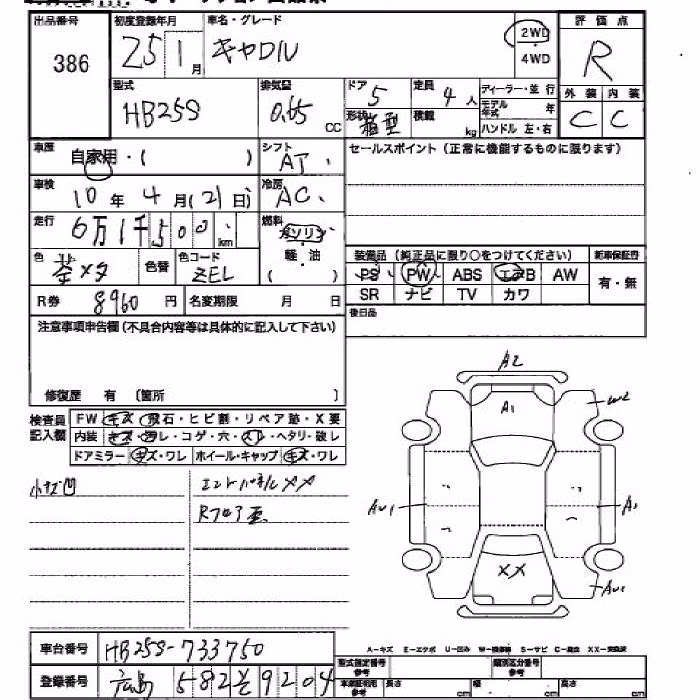 出品番号 初度登録年月 車名・グレード 2WD 4WD 評価点
386 25 1月 キャロル R
型式 排気量 ドア 定員 ディーラー・並行 外装 内装
HB25S 0.65 CC 5 4人 モデル年式 年 C C
形状 箱型 積載 kg ハンドル 左・右
車歴 自家用・( ) シフト AT セールスポイント(正常に機能するものに限ります)
車検 10年4月(21日) 冷房 AC
走行 6万1千500 km 燃料 ガソリン 軽・油 ( )
装備品(純正品に限り〇をつけてください) 新車保証書
色 メタ 色替 色コード ZEL
PS PW ABS エアB AW 有・無
SR ナビ TV カワ
R券 8960円 名変期限 月 日
後日品
注意事項申告欄(不具合内容等は具体的に記入して下さい)
修復歴 有 〔箇所 〕
検査員記入欄 FW キズ・飛石・ヒビ割・リペア跡・X要
内装 キズ・ヨゴレ・コゲ・穴・スレ・ヘタリ・破レ
ドアミラー キズ・ワレ ホイール・キャップ キズ・ワレ
小キズ凹 エンドパネルXX
Rフロア歪
A2
A1
W2
AU1
A1
XX
AU1
A-キズ E-エクボ U-凹み W-補修跡 S-サビ C-腐食 XX-交換済
車台番号 HB25S-733750
型式指定番号 参考 類別区分番号 参考
登録番号 広島 582 そ 9204
車庫証明用 参考 長さ cm 幅 cm 高さ cm